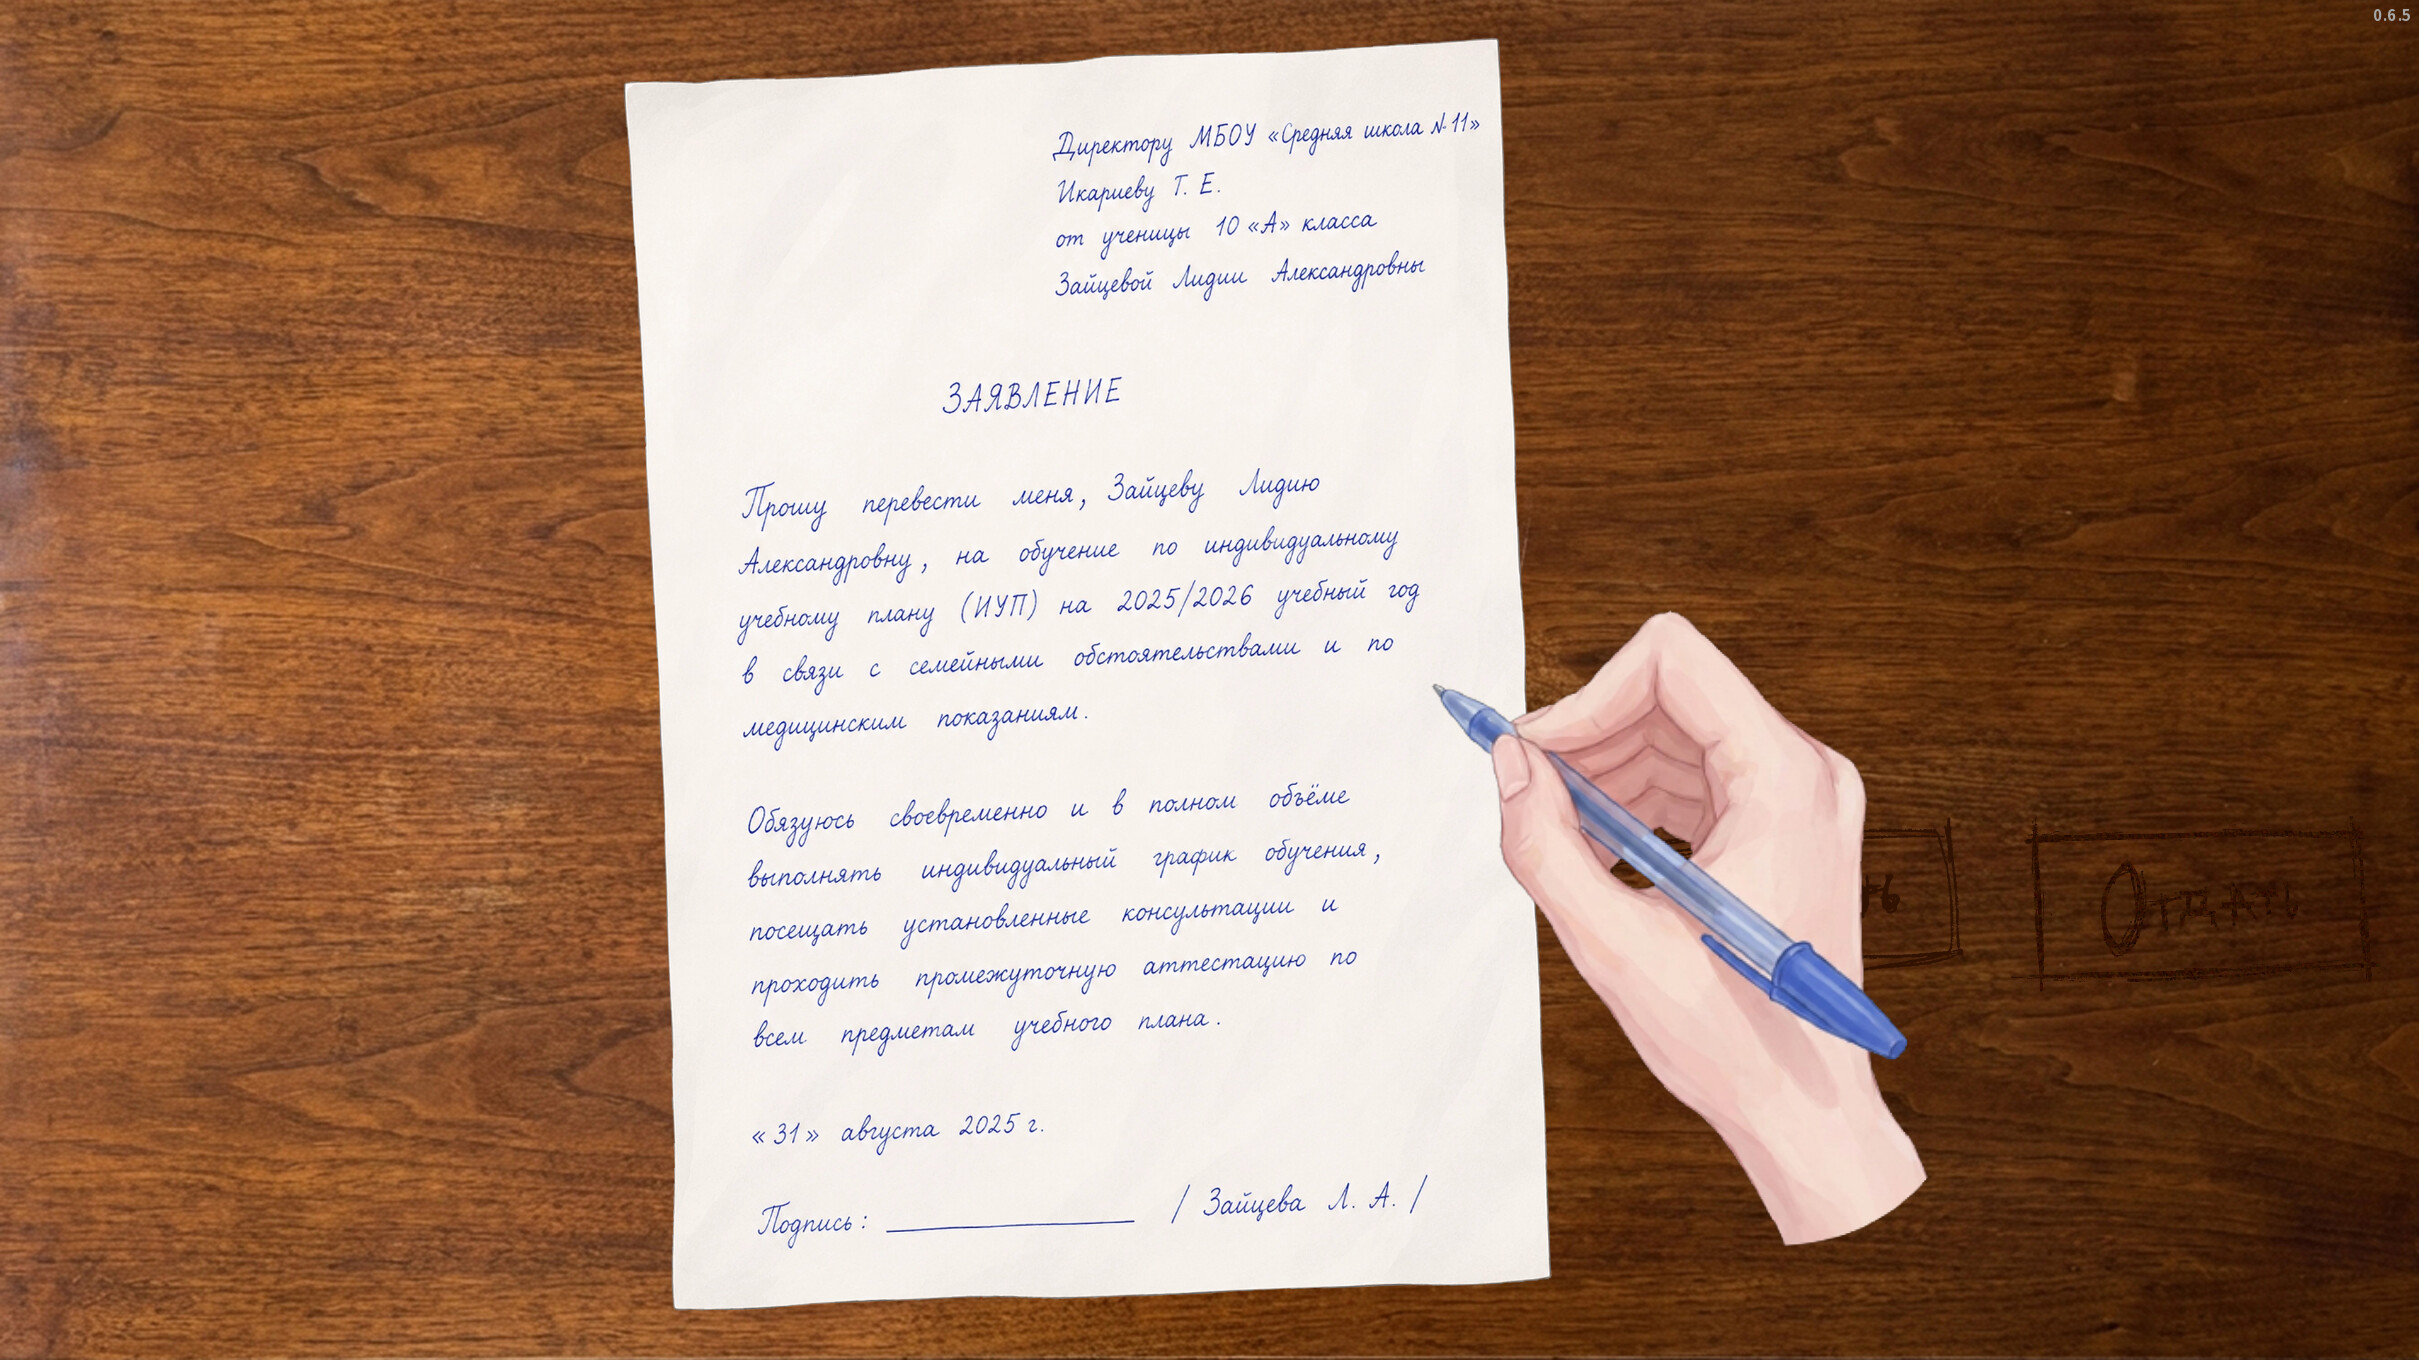 0.6.5
Директору МБОУ «Средняя школа №11»
Икариеву Т. Е.
от ученицы 10 «А» класса
Зайцевой Лидии Александровны
ЗАЯВЛЕНИЕ
Прошу перевести меня, Зайцеву Лидию
Александровну, на обучение по индивидуальному
учебному плану (ИУП) на 2025/2026 учебный год
в связи с семейными обстоятельствами и по
медицинским показаниям.
Обязуюсь своевременно и в полном объёме
выполнять индивидуальный график обучения,
посещать установленные консультации и
проходить промежуточную аттестацию по
всем предметам учебного плана.
«31» августа 2025 г.
Подпись: / Зайцева Л. А. /
Отдать